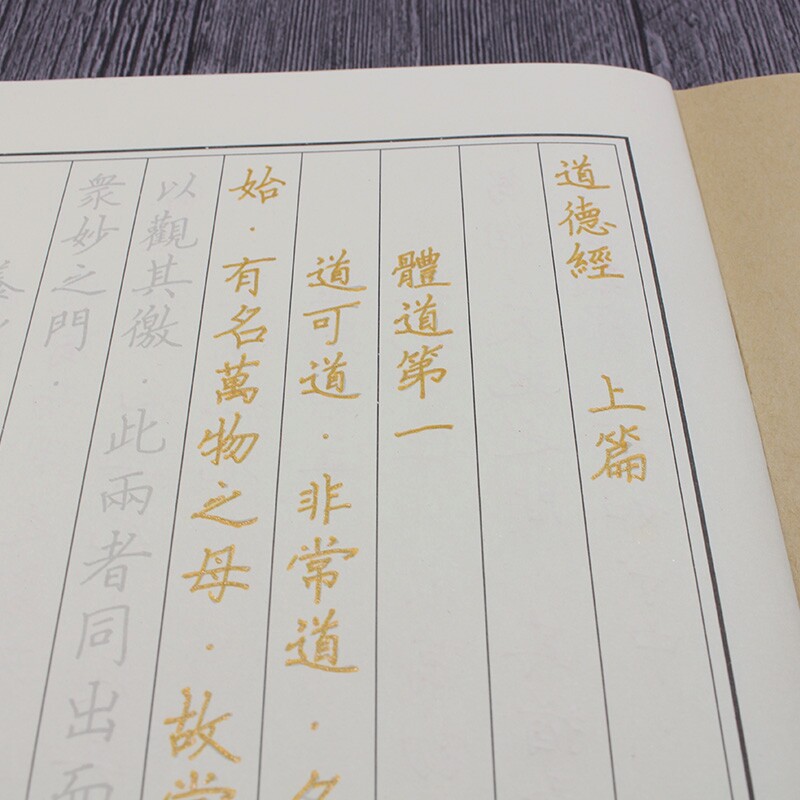 道德經 上篇
體道第一
道可道．非常道．名
始．有名萬物之母．故常
以觀其徼．此兩者同出而
衆妙之門．